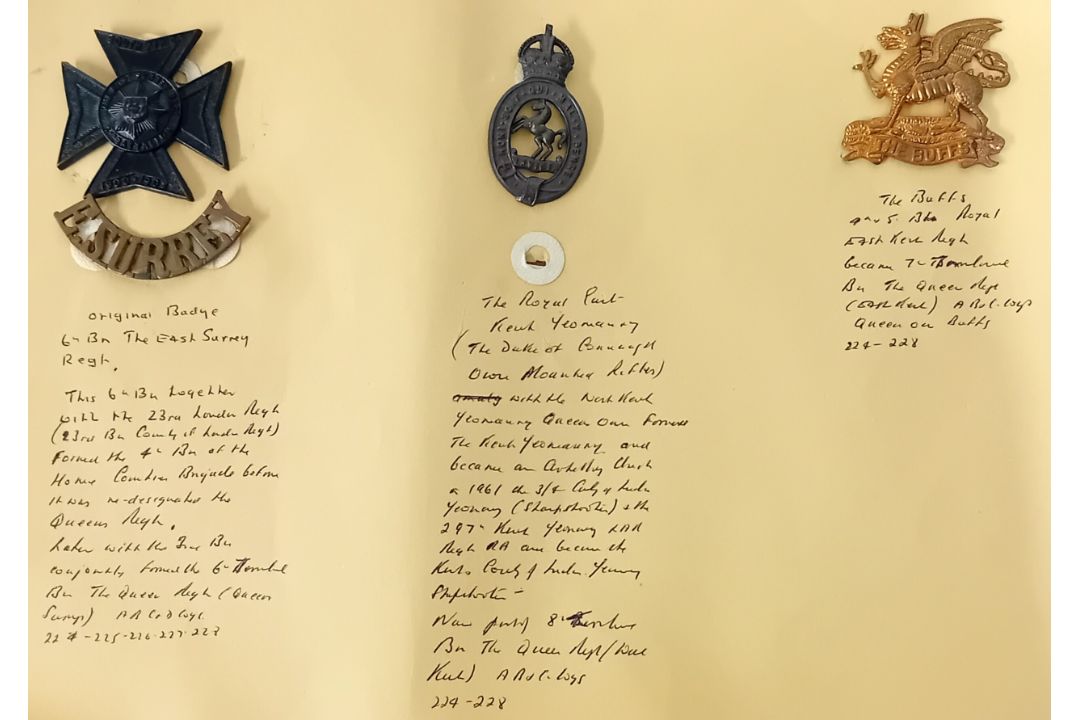 E. SURREY
original Badge
6th Bn The East Surrey
Regt.
This 6th Bn together
with the 23rd London Regt
(23rd Bn County of London Regt)
Formed the 4th Bn of the
Home Counties Brigade before
it was re-designated the
Queens Regt.
Later with the Bn
conjointly formed the 6th
Bn The Queens Regt (Queens
Surreys) Coys.
224-225-226-227-228
INVICTA
The Royal East
Kent Yeomanry
(The Duke of Connaught
Own Mounted Rifles)
with the West Kent
Yeomanry Queen Own Formed
The Kent Yeomanry and
became an Artillery Unit
1961 the 3/4 County of London
Yeomanry (Sharpshooters) & the
297th Kent Yeomanry LAA
Regt RA and became the
Kent & County of London Yeomanry
Sharpshooters -
Now part of 8th
Bn The Queens Regt (West
Kent) A B & C Coys
224-228
THE BUFFS
The Buffs
4th & 5th Bn Royal
East Kent Regt
became 7th
Bn The Queens Regt
(East Kent) A B & C Coys
Queen own Buffs
224-228